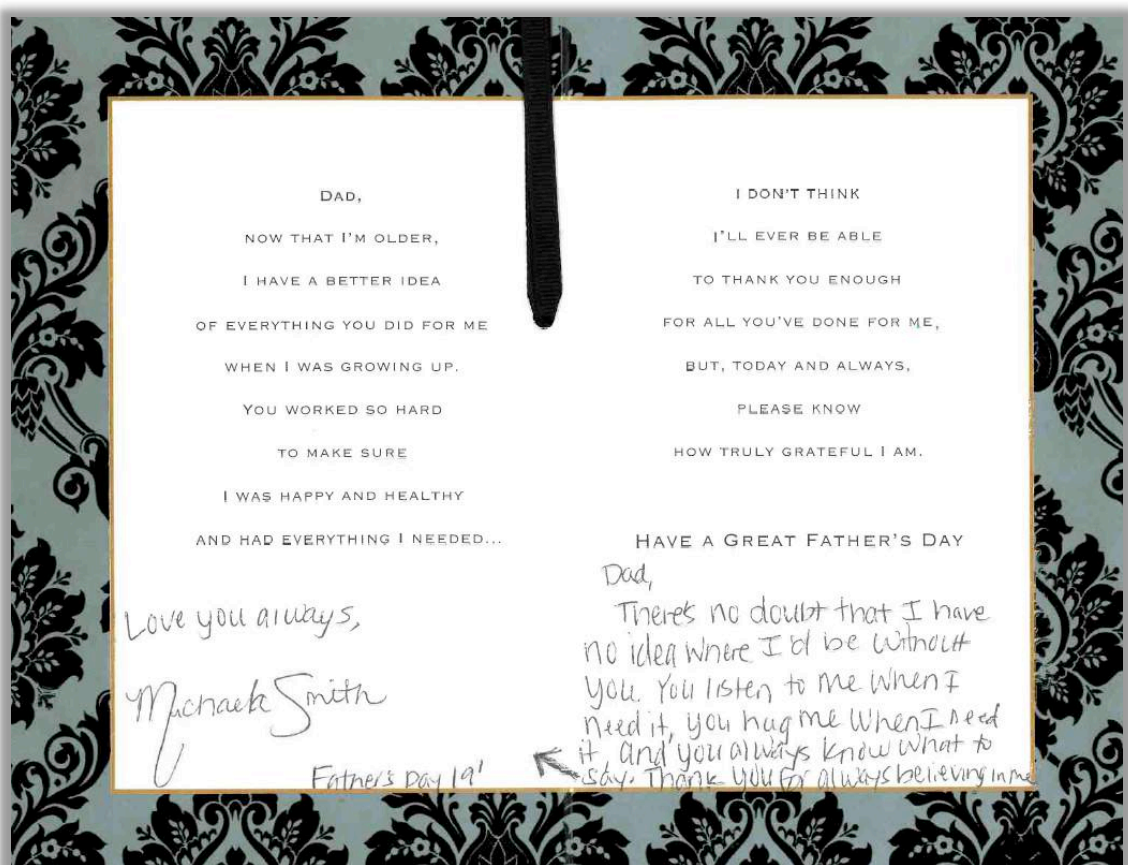 DAD,
NOW THAT I'M OLDER,
I HAVE A BETTER IDEA
OF EVERYTHING YOU DID FOR ME
WHEN I WAS GROWING UP.
YOU WORKED SO HARD
TO MAKE SURE
I WAS HAPPY AND HEALTHY
AND HAD EVERYTHING I NEEDED...
I DON'T THINK
I'LL EVER BE ABLE
TO THANK YOU ENOUGH
FOR ALL YOU'VE DONE FOR ME,
BUT, TODAY AND ALWAYS,
PLEASE KNOW
HOW TRULY GRATEFUL I AM.
HAVE A GREAT FATHER'S DAY
Dad,
There's no doubt that I have
no idea where I'd be without
you. You listen to me when I
need it, you hug me when I need
it and you always know what to
say. Thank you for always believing in me
Love you always,
Smith
Father's Day 19'